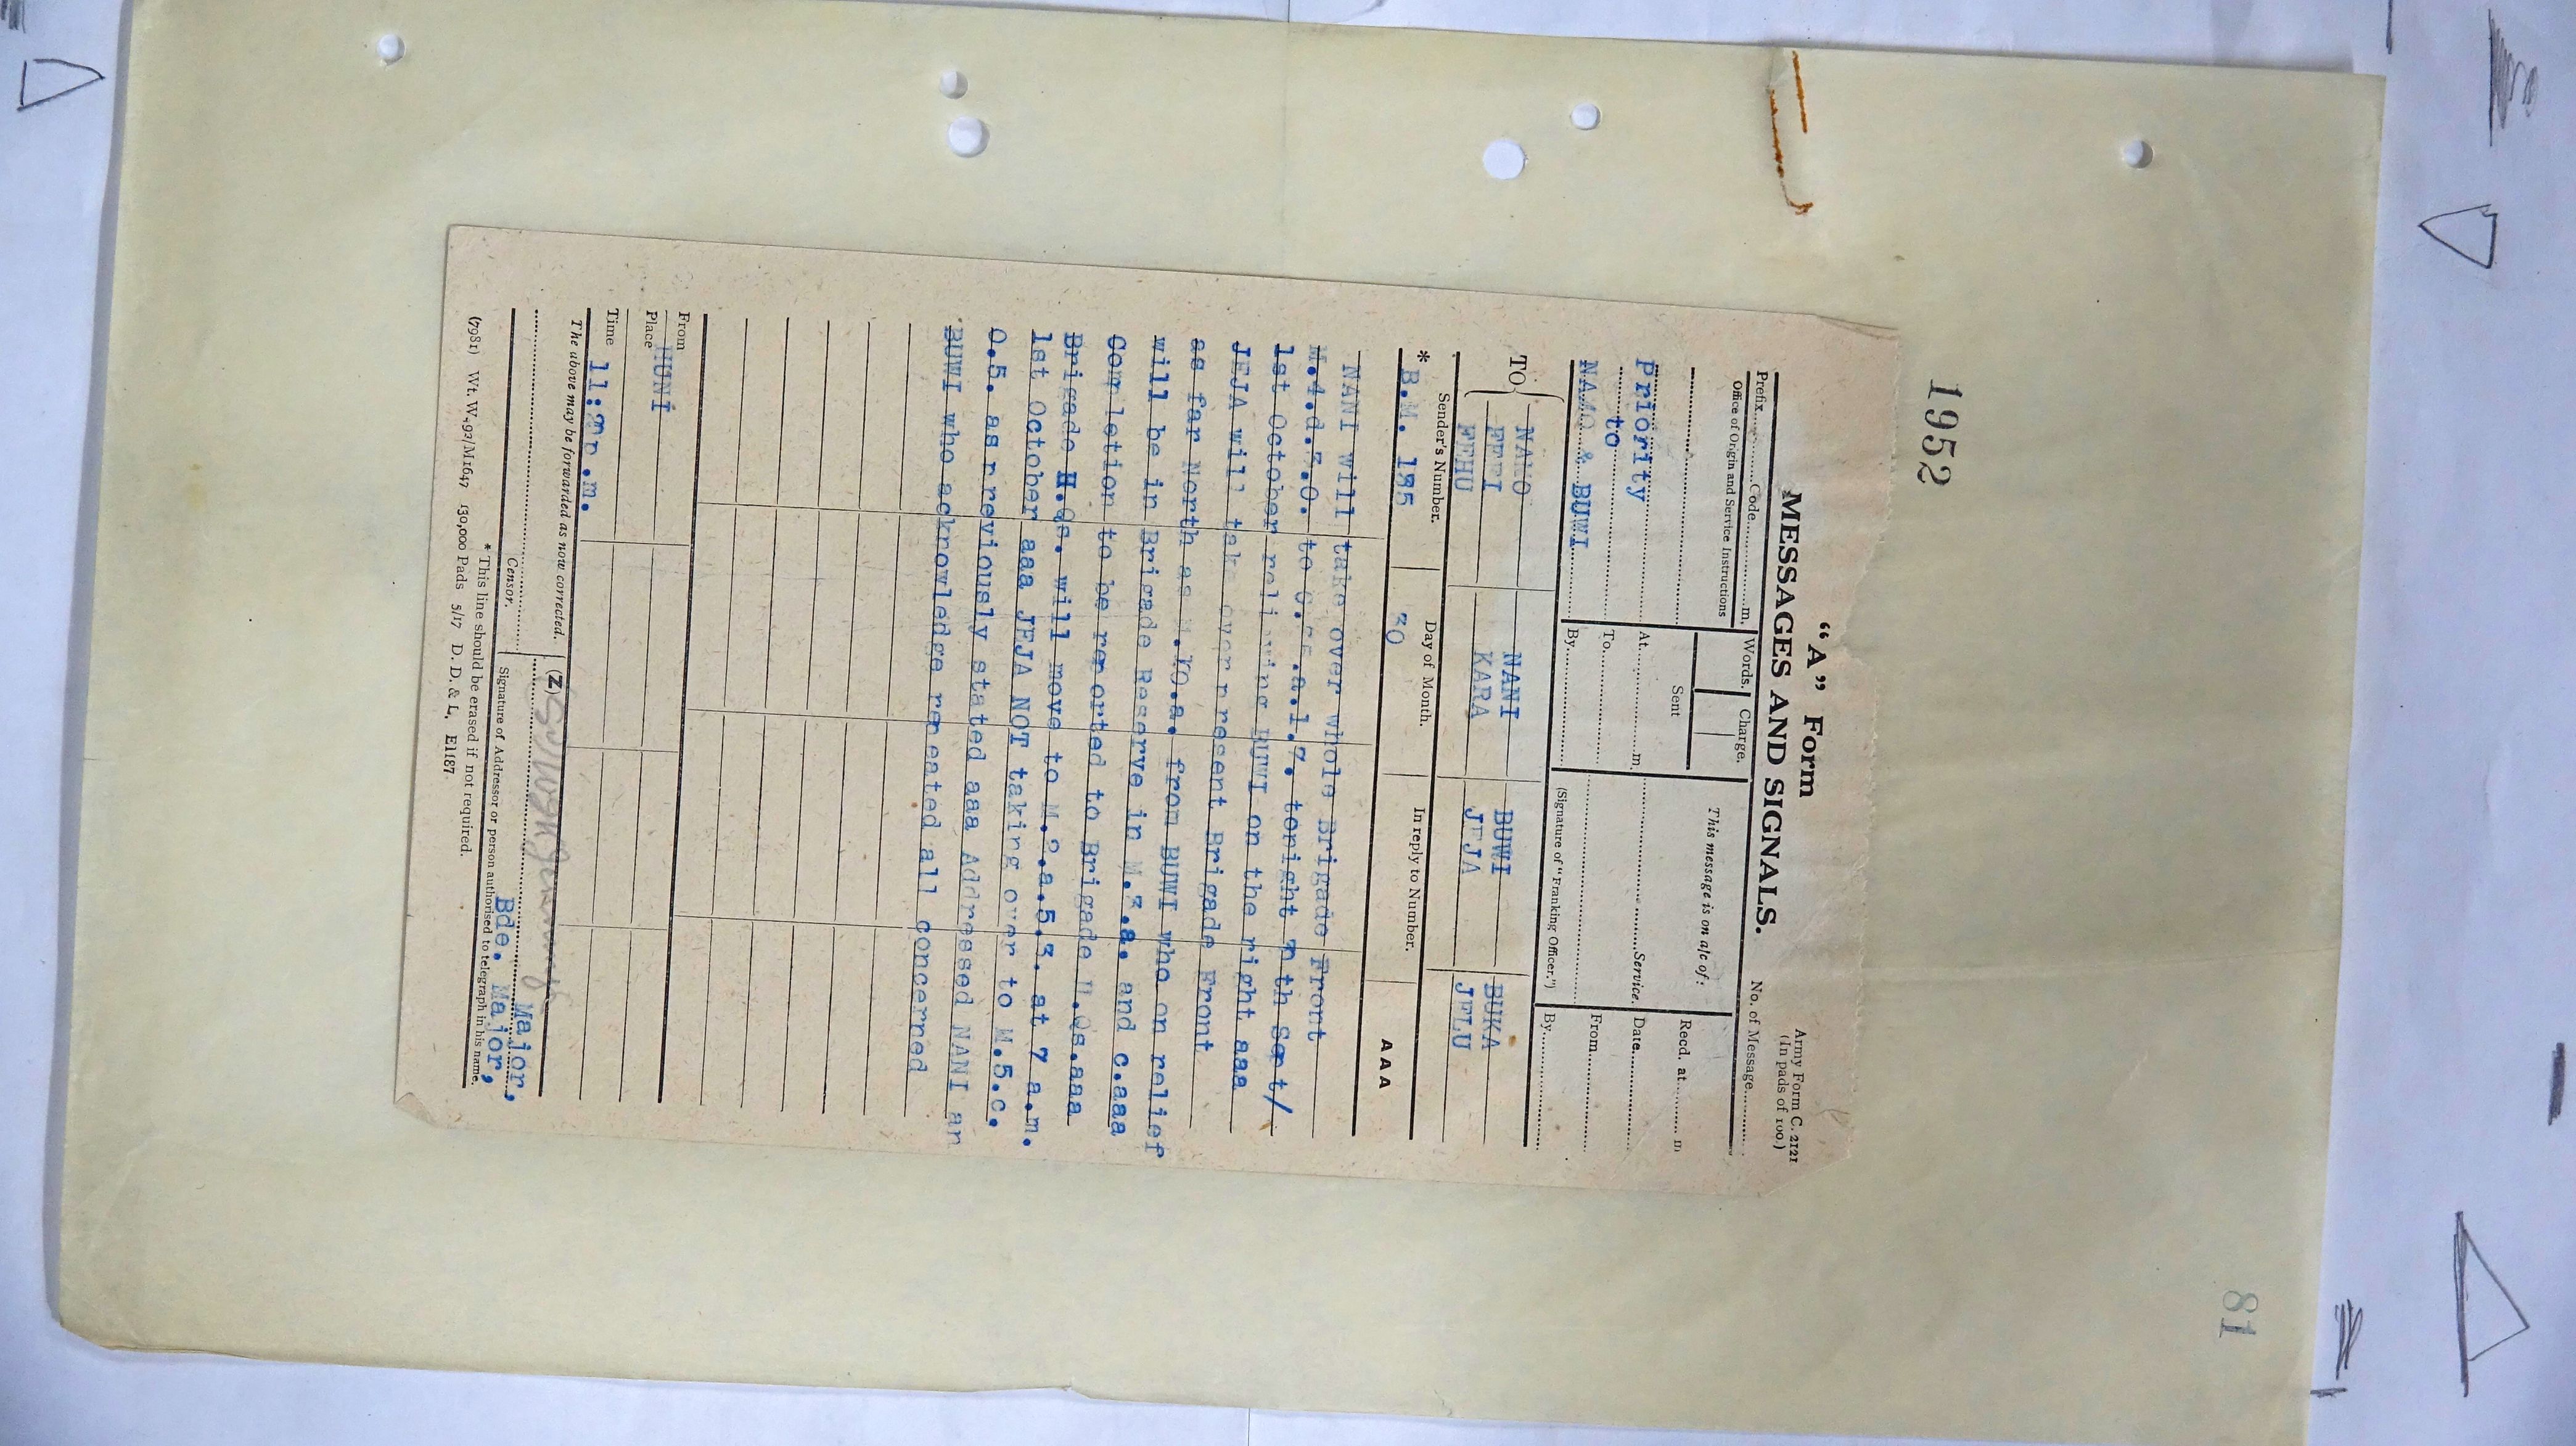 1952
81
"A" Form
Army Form C. 2121
(In pads of 100.)
MESSAGES AND SIGNALS.
No. of Message
Prefix Code m.
Words. Charge.
Office of Origin and Service Instructions
This message is on a/c of:
Recd. at m
Sent
Priority
At m.
Service.
Date
to
To
From
NAMO & BUWI
By
(Signature of "Franking Officer.")
By
TO
NAMO NANI BUWI BUKA
FEFI KARA JEJA JELU
FEHU
* Sender's Number. Day of Month. In reply to Number.
B.M. 135 30 AAA
NANI will take over whole Brigade Front
M.4.d.3.0. to tonight 30th Sept/
1st October relieving BUWI on the right aaa
JEJA will take over present Brigade Front
as far North as from BUWI who on relief
will be in Brigade Reserve in M.3.a. and c.aaa
Completion to be reported to Brigade H.Qs.aaa
Brigade H.Qs. will move to M.2.a.5.3. at 7 a.m.
1st October aaa JEJA NOT taking over to M.5.c.
0.5. as previously stated aaa Addressed NANI an
BUWI who acknowledge repeated all concerned
From HUNI
Place
Time 11: p.m.
The above may be forwarded as now corrected. (Z)
Major,
Bde. Major,
Censor. Signature of Addressor or person authorised to telegraph in his name.
* This line should be erased if not required.
(7981) Wt. W.492/M1647 130,000 Pads 5/17 D. D. & L. E1187